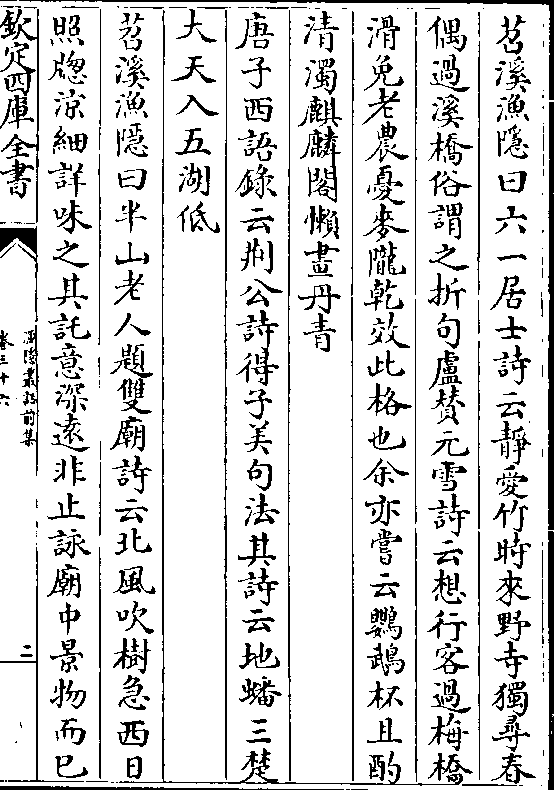 苕溪漁隱曰六一居士詩云靜愛竹時來野寺獨尋春
偶過溪橋俗謂之折句盧贊元雪詩云想行客過梅橋
滑免老農憂麥隴乾效此格也余亦嘗云鸚鵡杯且酌
清濁麒麟閣懶畫丹青
唐子西語錄云荆公詩得子美句法其詩云地蟠三楚
大天入五湖低
苕溪漁隱曰半山老人題雙廟詩云北風吹樹急西日
照牕涼細詳味之其託意深遠非止詠廟中景物而已
欽定四庫全書
漁隱叢話前集
卷三十六
二